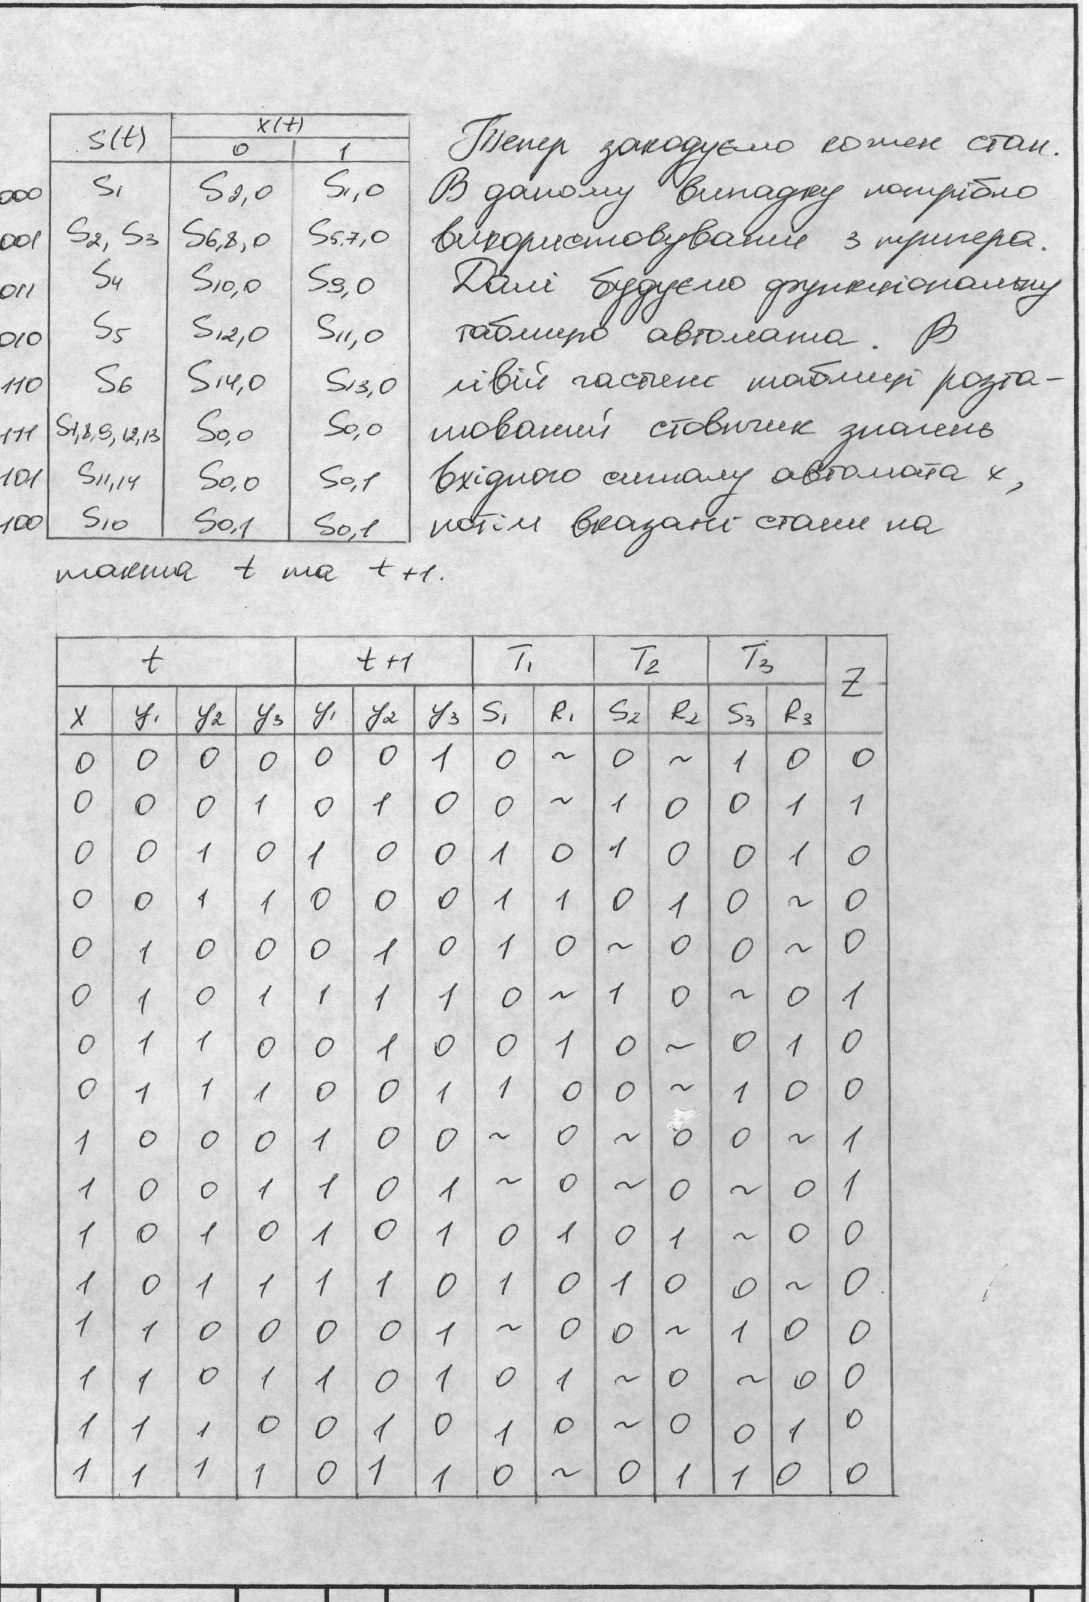 S(t) x(t)
0 1
000 S1 S2,0 S1,0
001 S2, S3 S6,8,0 S5,7,0
011 S4 S10,0 S9,0
010 S5 S12,0 S11,0
110 S6 S14,0 S13,0
111 S1,8,9,12,13 S0,0 S0,0
101 S11,14 S0,0 S0,1
100 S10 S0,1 S0,1
Тепер закодуємо кожен стан.
В даному випадку потрібно
використовувати 3 тригера.
Далі будуємо функціональну
таблицю автомата. В
лівій частині таблиці розта-
шований стовпчик значень
вхідного сигналу автомата x,
потім вказані стани на
такта t та t+1.
t t+1 T1 T2 T3 Z
x y1 y2 y3 y1 y2 y3 S1 R1 S2 R2 S3 R3
0 0 0 0 0 0 1 0 ~ 0 ~ 1 0 0
0 0 0 1 0 1 0 0 ~ 1 0 0 1 1
0 0 1 0 1 0 0 1 0 1 0 0 1 0
0 0 1 1 0 0 0 1 1 0 1 0 ~ 0
0 1 0 0 0 1 0 1 0 ~ 0 0 ~ 0
0 1 0 1 1 1 1 0 ~ 1 0 ~ 0 1
0 1 1 0 0 1 0 0 1 0 ~ 0 1 0
0 1 1 1 0 0 1 1 0 0 ~ 1 0 0
1 0 0 0 1 0 0 ~ 0 ~ 0 0 ~ 1
1 0 0 1 1 0 1 ~ 0 ~ 0 ~ 0 1
1 0 1 0 1 0 1 0 1 0 1 ~ 0 0
1 0 1 1 1 1 0 1 0 1 0 0 ~ 0
1 1 0 0 0 0 1 ~ 0 0 ~ 1 0 0
1 1 0 1 1 0 1 0 1 ~ 0 ~ 0 0
1 1 1 0 0 1 0 1 0 ~ 0 0 1 0
1 1 1 1 0 1 1 0 ~ 0 1 1 0 0